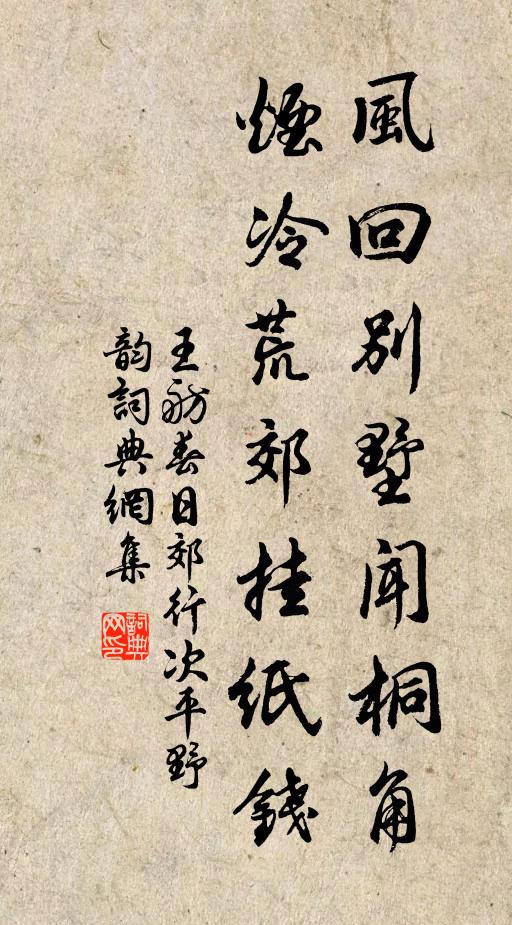 風回別墅聞桐角
煙冷荒郊挂紙錢
王舫春日郊行次平野
韵詞典網集
詞典
网印